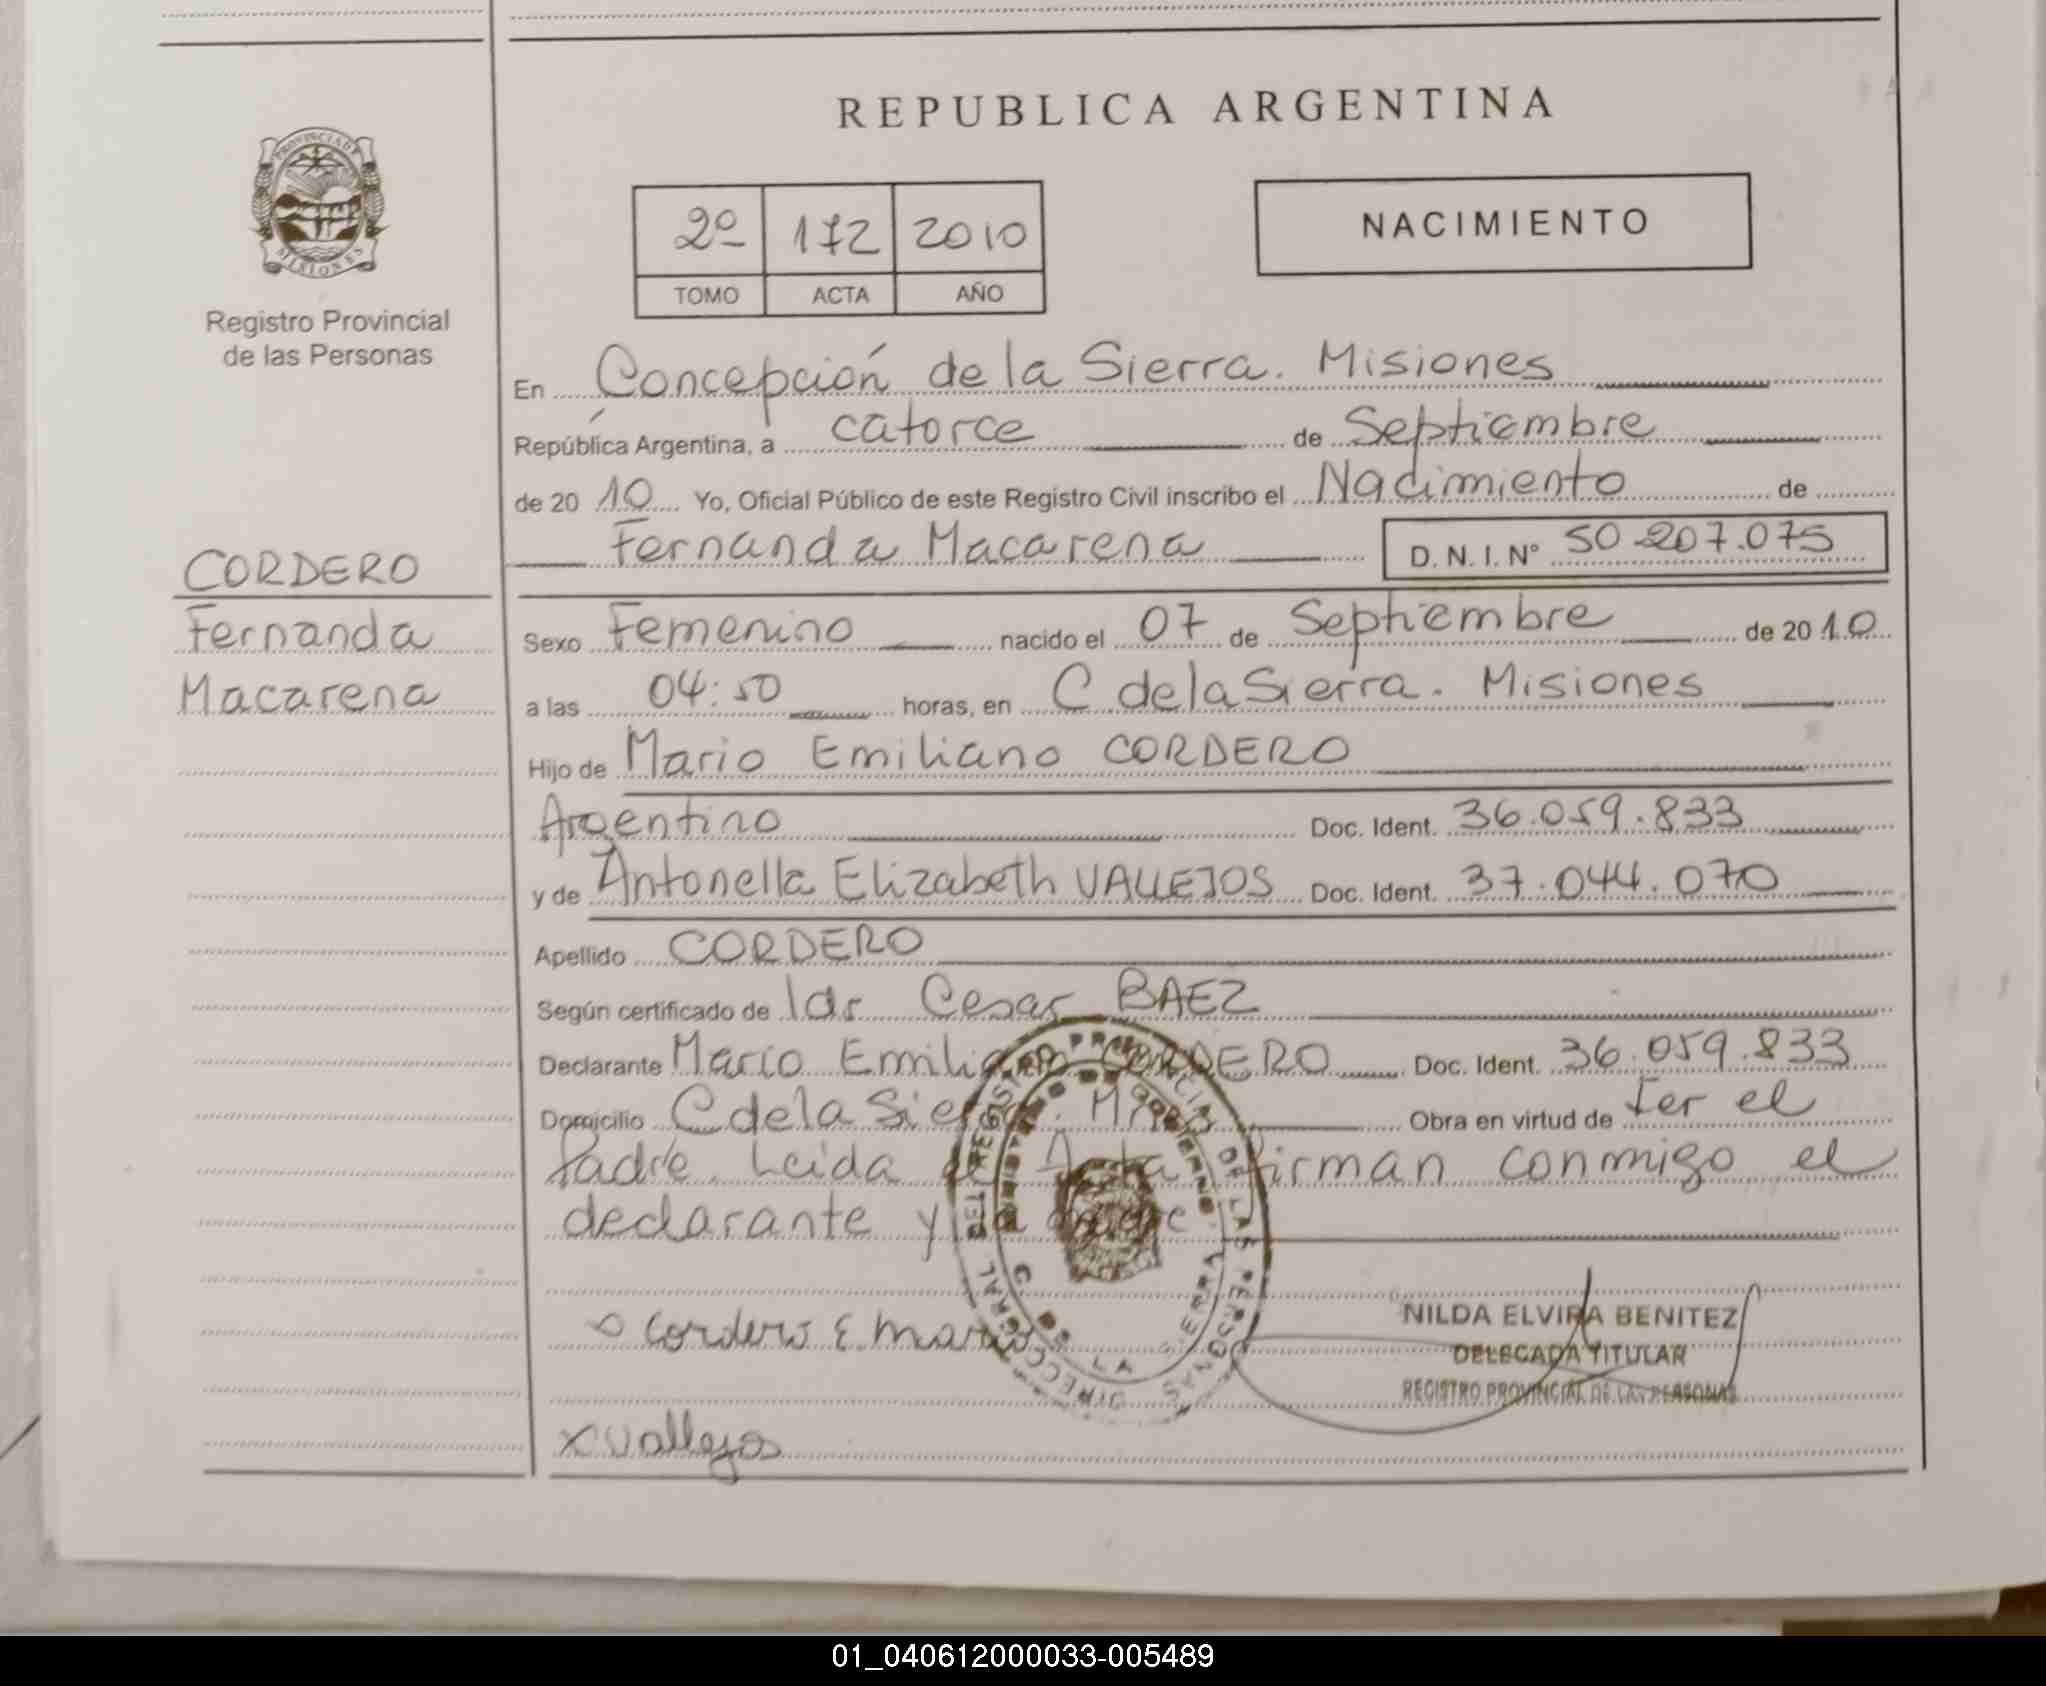 REPUBLICA ARGENTINA
PROVINCIA DE
MISIONES
Registro Provincial
de las Personas
2º 172 2010
TOMO ACTA AÑO
NACIMIENTO
En Concepción de la Sierra. Misiones
República Argentina, a catorce de Septiembre
de 2010 Yo, Oficial Público de este Registro Civil inscribo el Nacimiento de
Fernanda Macarena D.N.I. Nº 50.207.075
CORDERO
Fernanda
Macarena
Sexo Femenino nacido el 07 de Septiembre de 2010
a las 04:50 horas, en C de la Sierra. Misiones
Hijo de Mario Emiliano CORDERO
Argentino Doc. Ident. 36.059.833
y de Antonella Elizabeth VALLEJOS Doc. Ident. 37.044.070
Apellido CORDERO
Según certificado de Cesar BAEZ
Declarante Mario Emiliano CORDERO Doc. Ident. 36.059.833
Domicilio C de la Sierra. Mnes Obra en virtud de ser el
Padre. Leida el Acta firman conmigo el
declarante y la madre
DIRECCION GENERAL DEL REGISTRO PROVINCIAL DE LAS PERSONAS
C. DE LA SIERRA
Cordero E. Mario
NILDA ELVIRA BENITEZ
DELEGADA TITULAR
REGISTRO PROVINCIAL DE LAS PERSONAS
x Vallejos
01_040612000033-005489